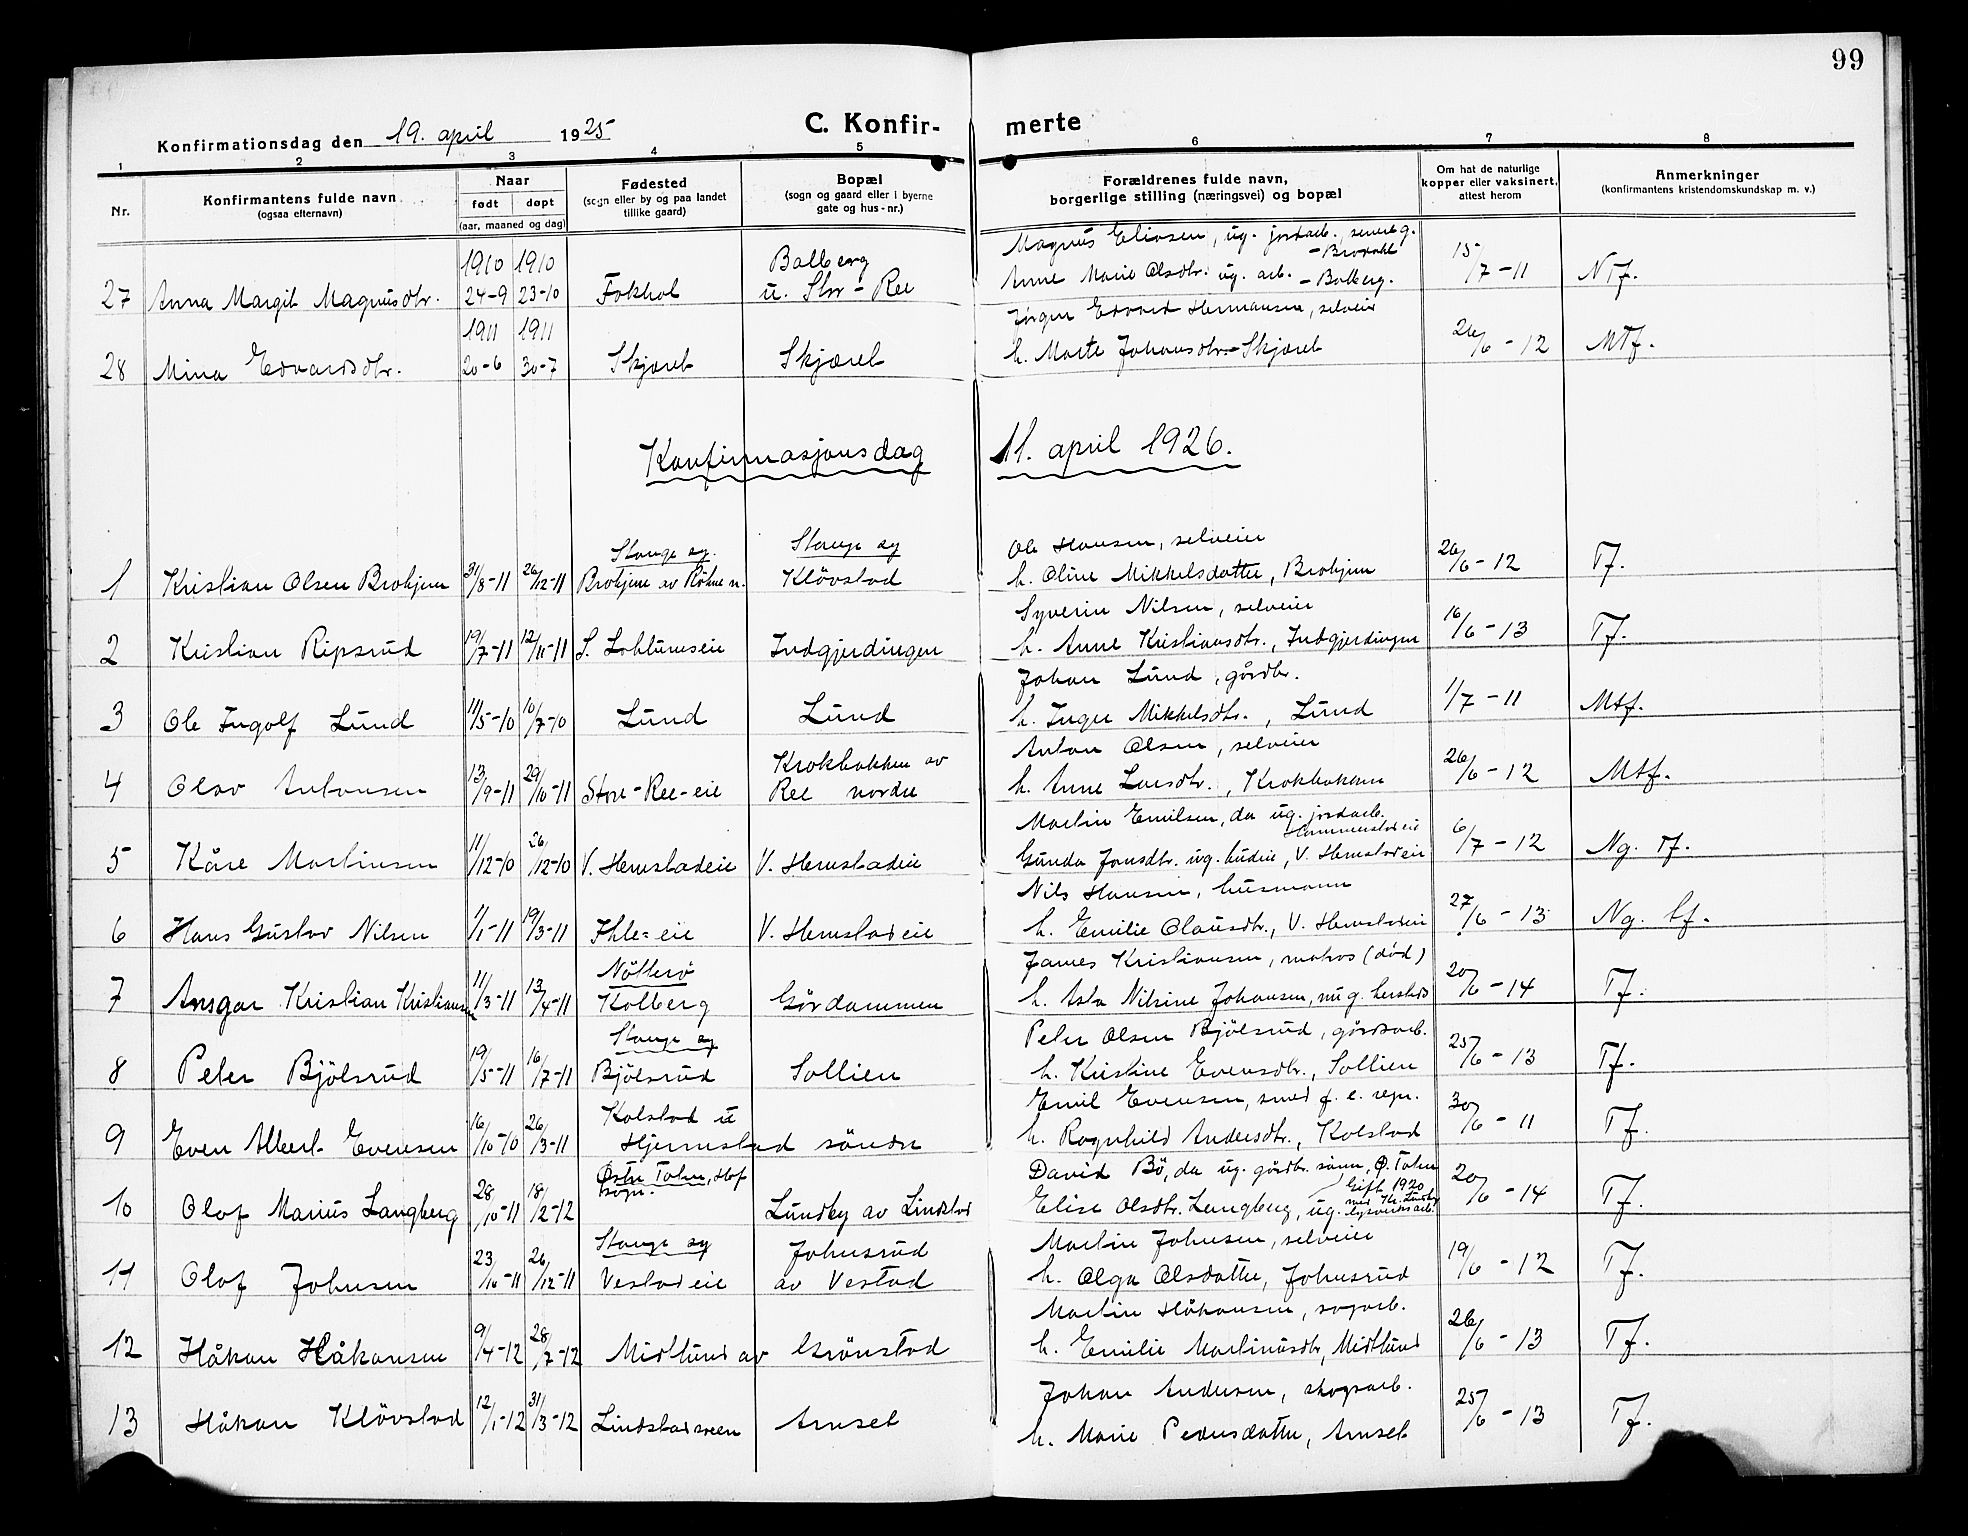 99
Konfirmationsdag den 19. april 1925
C. Konfir-
merte
1 2 3 4 5 6 7 8
Nr.
Konfirmantens fulde navn
(ogsaa efternavn)
Naar
født døpt
(aar, maaned og dag)
Fødested
(sogn eller by og paa landet
tillike gaard)
Bopæl
(sogn og gaard eller i byerne
gate og hus-nr.)
Forældrenes fulde navn,
borgerlige stilling (næringsvei) og bopæl
Om hat de naturlige
kopper eller vaksinert,
attest herom
Anmerkninger
(konfirmantens kristendomskundskap m. v.)
1910 1910 Balberg Magnus Eliasen, ug. jordarb., senere g.
- Brodahl
27 Anna Margit Magnusdtr. 24-9 23-10 Fokhol u. Stor-Ree Anne Marie Olsdtr. ug. arb. - Balberg. 15/7-11 Ntf.
1911 1911 Jörgen Edvard Hermansen, selveier
28 Mina Edvardsdtr. 20-6 30-7 Skjæret Skjæret h. Marte Johansdtr. - Skjæret 26/6-12 Mtf.
Konfirmasjonsdag 11. april 1926.
Stange og Stange og Ole Hansen, selveier
1 Kristian Olsen Brohjem 31/8-11 26/12-11 Brohjem av Röhne n. Klövstad h. Oline Mikkelsdatter, Brohjem 26/6-12 Tf.
Syverin Nilsen, selveier
2 Kristian Ripsrud 19/7-11 12/11-11 S. Lohtuneie Indgjerdingen h. Anne Kristiansdtr., Indgjerdingen 16/6-13 Tf.
Johan Lund, gårdbr.
3 Ole Ingolf Lund 11/5-10 10/7-10 Lund Lund h. Inger Mikkelsdtr., Lund 1/7-11 Mtf.
Krokbakken av Anton Olsen, selveier
4 Olav Antonsen 13/9-11 29/10-11 Store-Ree-eie Ree nordre h. Anne Larsdtr., Krokbakken 26/6-12 Mtf.
Martin Emilsen, da ug. jordarb.
Hommerstadeie
5 Kåre Martinsen 11/12-10 26/12-10 V. Hemstadeie V. Hemstadeie Gunda Jonsdtr. ug. budeie, V. Hemstadeie 6/7-12 Ng. tf.
Nils Hansen, husmann
6 Hans Gustav Nilsen 1/1-11 19/3-11 Ihle-eie V. Hemstadeie h. Emilie Clausdtr., V. Hemstadeie 27/6-13 Ng. tf.
Nötterö James Kristiansen, matros (död)
7 Ansgar Kristian Kristiansen 11/3-11 13/4-11 Kolberg Gördammen h. Asta Nilsine Johansen, nu g. 20/6-14 Tf.
Stange og Peter Olsen Bjölsrud, gårdsarb.
8 Peter Bjölsrud 19/5-11 16/7-11 Bjölsrud Sollien h. Kristine Evensdtr., Sollien 25/6-13 Tf.
Kolstad u Emil Evensen, smed f. e. repr.
9 Even Albert Evensen 16/10-10 26/3-11 Hjemstad söndre h. Ragnhild Andersdtr., Kolstad 30/6-11 Tf.
Østre Toten, Hof David Bö, da ug. gårdbr. sönn, Ø. Toten
sogn. Gift 1920
10 Olaf Marius Langberg 28/10-11 18/2-12 Lundby av Lindstad Elise Olsdtr. Langberg, ug. 20/6-14 Tf.
Stange og Johnsrud Martin Johnsen, selveier
11 Olaf Johnsen 23/10-11 26/12-11 Vestadeie av Vestad h. Olga Olsdatter, Johnsrud 19/6-12 Tf.
Martin Håkansen, sagarb.
12 Håkan Håkansen 9/4-12 28/7-12 Midtlund av Grönstad h. Emilie Martinusdtr, Midtlund 26/6-13 Tf.
Johan Andersen, skogsarb.
13 Håkan Klövstad 12/1-12 31/3-12 Lindstadsveen Arnset h. Marie Pedersdatter, Arnset 25/6-13 Tf.